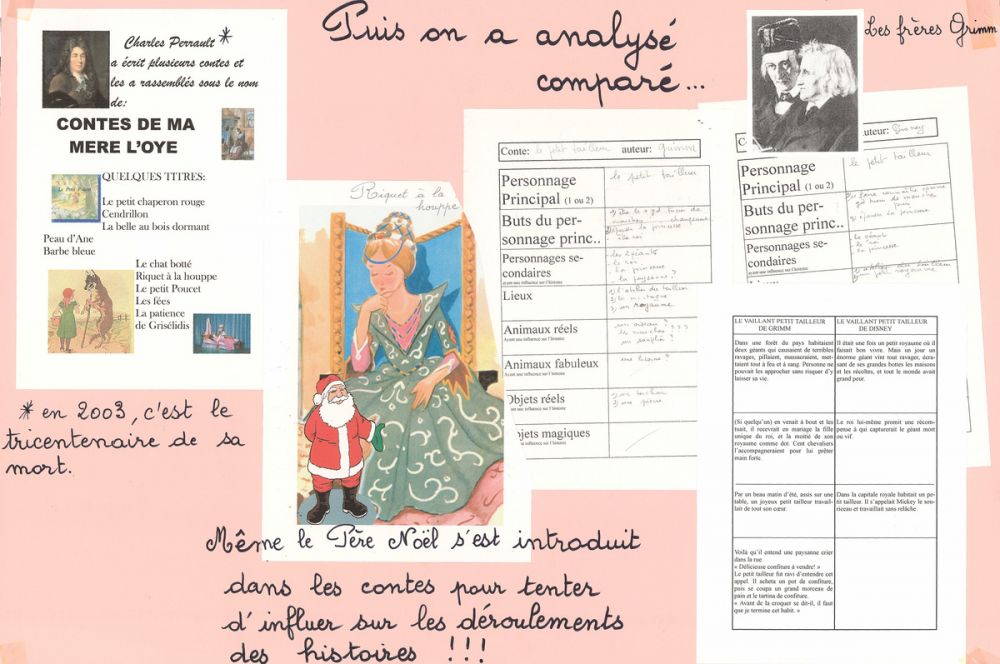 Puis on a analysé
comparé...
Charles Perrault *
a écrit plusieurs contes et
les a rassemblés sous le nom
de:
CONTES DE MA
MERE L'OYE
QUELQUES TITRES:
Le petit chaperon rouge
Cendrillon
La belle au bois dormant
Peau d'Ane
Barbe bleue
Le chat botté
Riquet à la houppe
Le petit Poucet
Les fées
La patience
de Grisélidis
* en 2003, c'est le
tricentenaire de sa
mort.
Riquet à la
houppe
Même le Père Noël s'est introduit
dans les contes pour tenter
d'influer sur les déroulements
des histoires !!!
Conte: le petit tailleur auteur: Grimm
Personnage
Principal (1 ou 2)
le petit tailleur
Buts du per-
sonnage princ..
Personnages se-
condaires
Ayant une influence sur l'histoire
les géants
le roi
la princesse
la paysanne ?
Lieux
Animaux réels
Ayant une influence sur l'histoire
Animaux fabuleux
Ayant une influence sur l'histoire
une licorne ?
Objets réels
Objets magiques
Les frères Grimm
auteur: Disney
Personnage
Principal (1 ou 2)
le petit tailleur
Buts du per-
sonnage princ..
Personnages se-
condaires
Ayant une influence sur l'histoire
le roi
la princesse
LE VAILLANT PETIT TAILLEUR
DE GRIMM
LE VAILLANT PETIT TAILLEUR
DE DISNEY
Dans une forêt du pays habitaient
deux géants qui causaient de terribles
ravages, pillaient, massacraient, met-
taient tout à feu et à sang. Personne ne
pouvait les approcher sans risquer d'y
laisser sa vie.
Il était une fois un petit royaume où il
faisait bon vivre. Mais un jour un
énorme géant vint tout ravager, écra-
sant de ses grandes bottes les maisons
et les récoltes, et tout le monde avait
grand peur.
(Si quelqu'un) en venait à bout et les
tuait, il recevrait en mariage la fille
unique du roi, et la moitié de son
royaume comme dot. Cent chevaliers
l'accompagneraient pour lui prêter
main forte.
Le roi lui-même promit une récom-
pense à qui capturerait le géant mort
ou vif.
Par un beau matin d'été, assis sur une
table, un joyeux petit tailleur travail-
lait de tout son cœur.
Dans la capitale royale habitait un pe-
tit tailleur. Il s'appelait Mickey le sou-
riceau et travaillait sans relâche.
Voilà qu'il entend une paysanne crier
dans la rue.
« Délicieuse confiture à vendre! »
Le petit tailleur fut ravi d'entendre cet
appel. Il acheta un pot de confiture,
puis se coupa un grand morceau de
pain et le tartina de confiture.
« Avant de la croquer se dit-il, il faut
que je termine cet habit. »